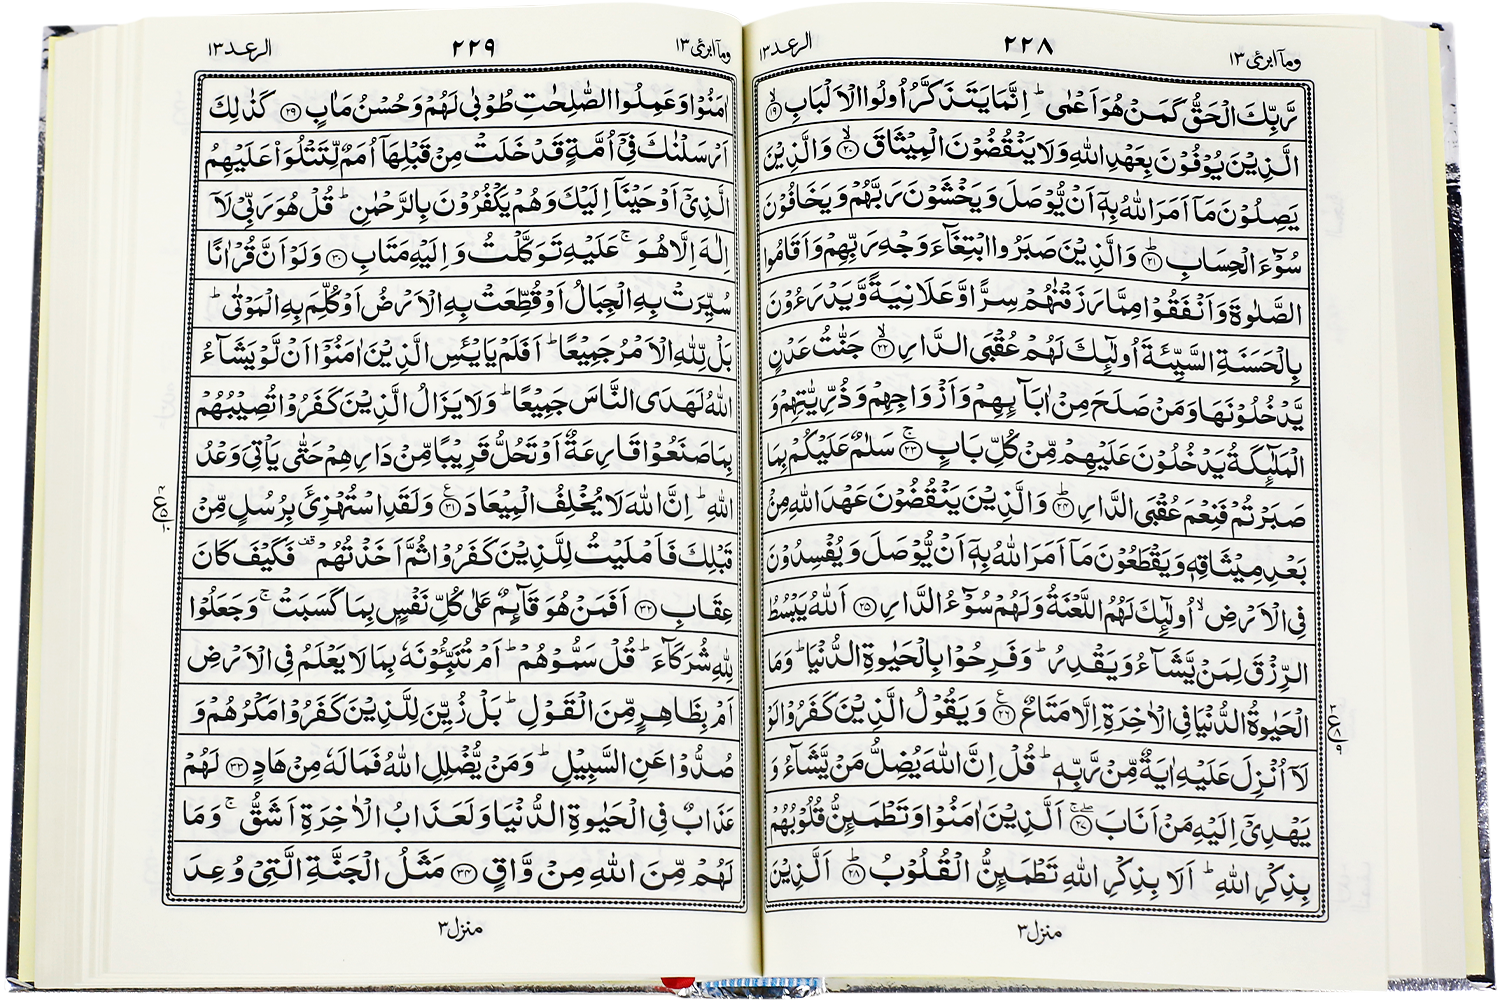 وما ابرئ ١٣
٢٢٨
الرعد ١٣
رَّبِّكَ الْحَقُّ كَمَنْ هُوَ اَعْمٰى ؕ اِنَّمَا يَتَذَكَّرُ اُولُوا الْاَلْبَابِ ۙ ﴿۱۹﴾
الَّذِيْنَ يُوْفُوْنَ بِعَهْدِ اللّٰهِ وَلَا يَنْقُضُوْنَ الْمِيْثَاقَ ۙ ﴿۲۰﴾ وَالَّذِيْنَ
يَصِلُوْنَ مَاۤ اَمَرَ اللّٰهُ بِهٖۤ اَنْ يُّوْصَلَ وَيَخْشَوْنَ رَبَّهُمْ وَيَخَافُوْنَ
سُوْٓءَ الْحِسَابِ ؕ ﴿۲۱﴾ وَالَّذِيْنَ صَبَرُوا ابْتِغَآءَ وَجْهِ رَبِّهِمْ وَاَقَامُوا
الصَّلٰوةَ وَاَنْفَقُوْا مِمَّا رَزَقْنٰهُمْ سِرًّا وَّعَلَانِيَةً وَّيَدْرَءُوْنَ
بِالْحَسَنَةِ السَّيِّئَةَ اُولٰٓئِكَ لَهُمْ عُقْبَى الدَّارِ ۙ ﴿۲۲﴾ جَنّٰتُ عَدْنٍ
يَّدْخُلُوْنَهَا وَمَنْ صَلَحَ مِنْ اٰبَآئِهِمْ وَاَزْوَاجِهِمْ وَذُرِّيّٰتِهِمْ وَ
الْمَلٰٓئِكَةُ يَدْخُلُوْنَ عَلَيْهِمْ مِّنْ كُلِّ بَابٍ ۚ ﴿۲۳﴾ سَلٰمٌ عَلَيْكُمْ بِمَا
صَبَرْتُمْ فَنِعْمَ عُقْبَى الدَّارِ ؕ ﴿۲۴﴾ وَالَّذِيْنَ يَنْقُضُوْنَ عَهْدَ اللّٰهِ مِنْۢ
بَعْدِ مِيْثَاقِهٖ وَيَقْطَعُوْنَ مَاۤ اَمَرَ اللّٰهُ بِهٖۤ اَنْ يُّوْصَلَ وَيُفْسِدُوْنَ
فِى الْاَرْضِ ۙ اُولٰٓئِكَ لَهُمُ اللَّعْنَةُ وَلَهُمْ سُوْٓءُ الدَّارِ ﴿۲۵﴾ اَللّٰهُ يَبْسُطُ
الرِّزْقَ لِمَنْ يَّشَآءُ وَيَقْدِرُ ؕ وَفَرِحُوْا بِالْحَيٰوةِ الدُّنْيَا ؕ وَمَا
الْحَيٰوةُ الدُّنْيَا فِى الْاٰخِرَةِ اِلَّا مَتَاعٌ ﴿۲۶﴾ وَيَقُوْلُ الَّذِيْنَ كَفَرُوْا لَوْ
لَاۤ اُنْزِلَ عَلَيْهِ اٰيَةٌ مِّنْ رَّبِّهٖ ؕ قُلْ اِنَّ اللّٰهَ يُضِلُّ مَنْ يَّشَآءُ وَ
يَهْدِىْۤ اِلَيْهِ مَنْ اَنَابَ ﴿۲۷﴾ اَلَّذِيْنَ اٰمَنُوْا وَتَطْمَئِنُّ قُلُوْبُهُمْ
بِذِكْرِ اللّٰهِ ؕ اَلَا بِذِكْرِ اللّٰهِ تَطْمَئِنُّ الْقُلُوْبُ ؕ ﴿۲۸﴾ اَلَّذِيْنَ
ع
٨
٩
منزل ٣
وما ابرئ ١٣
٢٢٩
الرعد ١٣
اٰمَنُوْا وَعَمِلُوا الصّٰلِحٰتِ طُوْبٰى لَهُمْ وَحُسْنُ مَاٰبٍ ﴿۲۹﴾ كَذٰلِكَ
اَرْسَلْنٰكَ فِىْۤ اُمَّةٍ قَدْ خَلَتْ مِنْ قَبْلِهَاۤ اُمَمٌ لِّتَتْلُوَا۟ عَلَيْهِمُ
الَّذِىْۤ اَوْحَيْنَاۤ اِلَيْكَ وَهُمْ يَكْفُرُوْنَ بِالرَّحْمٰنِ ؕ قُلْ هُوَ رَبِّىْ لَاۤ
اِلٰهَ اِلَّا هُوَ ۚ عَلَيْهِ تَوَكَّلْتُ وَاِلَيْهِ مَتَابِ ﴿۳۰﴾ وَلَوْ اَنَّ قُرْاٰنًا
سُيِّرَتْ بِهِ الْجِبَالُ اَوْ قُطِّعَتْ بِهِ الْاَرْضُ اَوْ كُلِّمَ بِهِ الْمَوْتٰى ؕ
بَلْ لِّلّٰهِ الْاَمْرُ جَمِيْعًا ؕ اَفَلَمْ يَا۟يْـَٔسِ الَّذِيْنَ اٰمَنُوْۤا اَنْ لَّوْ يَشَآءُ
اللّٰهُ لَهَدَى النَّاسَ جَمِيْعًا ؕ وَلَا يَزَالُ الَّذِيْنَ كَفَرُوْا تُصِيْبُهُمْ
بِمَا صَنَعُوْا قَارِعَةٌ اَوْ تَحُلُّ قَرِيْبًا مِّنْ دَارِهِمْ حَتّٰى يَاْتِىَ وَعْدُ
اللّٰهِ ؕ اِنَّ اللّٰهَ لَا يُخْلِفُ الْمِيْعَادَ ﴿۳۱﴾ وَلَقَدِ اسْتُهْزِئَ بِرُسُلٍ مِّنْ
قَبْلِكَ فَاَمْلَيْتُ لِلَّذِيْنَ كَفَرُوْا ثُمَّ اَخَذْتُهُمْ قف فَكَيْفَ كَانَ
عِقَابِ ﴿۳۲﴾ اَفَمَنْ هُوَ قَآئِمٌ عَلٰى كُلِّ نَفْسٍۢ بِمَا كَسَبَتْ ۚ وَجَعَلُوْا
لِلّٰهِ شُرَكَآءَ ؕ قُلْ سَمُّوْهُمْ ؕ اَمْ تُنَبِّـُٔوْنَهٗ بِمَا لَا يَعْلَمُ فِى الْاَرْضِ
اَمْ بِظَاهِرٍ مِّنَ الْقَوْلِ ؕ بَلْ زُيِّنَ لِلَّذِيْنَ كَفَرُوْا مَكْرُهُمْ وَ
صُدُّوْا عَنِ السَّبِيْلِ ؕ وَمَنْ يُّضْلِلِ اللّٰهُ فَمَا لَهٗ مِنْ هَادٍ ﴿۳۳﴾ لَهُمْ
عَذَابٌ فِى الْحَيٰوةِ الدُّنْيَا وَلَعَذَابُ الْاٰخِرَةِ اَشَقُّ ۚ وَمَا
لَهُمْ مِّنَ اللّٰهِ مِنْ وَّاقٍ ﴿۳۴﴾ مَثَلُ الْجَنَّةِ الَّتِىْ وُعِدَ
ع
٥
١٠
منزل ٣